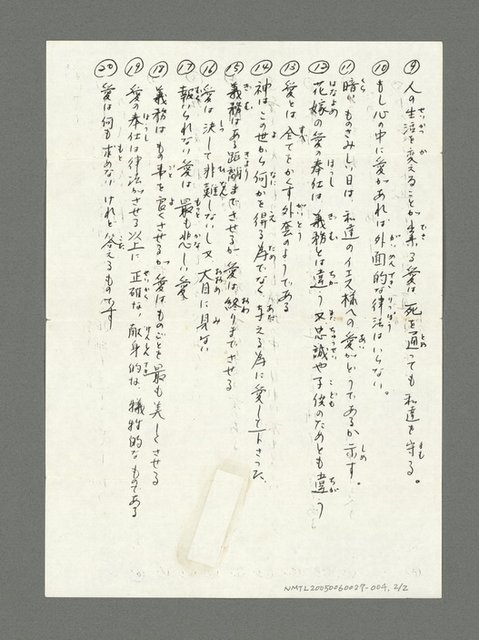 ⑨ 人の生活を変えることが出来る愛は 死を通っても私達を守る。
⑩ もし心の中に愛があれば外面的な律法はいらない。
⑪ 暗い ものさみしい日は、私達のイエス様への愛がどうであるか示す。
⑫ 花嫁の愛の奉仕は 義務とは違う 又忠誠や子供のためとも違う
⑬ 愛とは 全てをかくす外套のようである
⑭ 神はこの世から何かを得る為でなく 与える為に愛して下さった
⑮ 義務はある距離までさせるが 愛は終りまでさせる
⑯ 愛は 決して非難しないし又 大目に見ない
⑰ 報いられない愛は 最も悲しい愛
⑱ 義務は もの事を良くさせるが 愛はものごとを最も美しくさせる
⑲ 愛の奉仕は律法がさせる以上に 正確な、献身的な、犠牲的なものである
⑳ 愛は何も求めないけれど 答えるものです
NMTL20050060027-004, 2/2